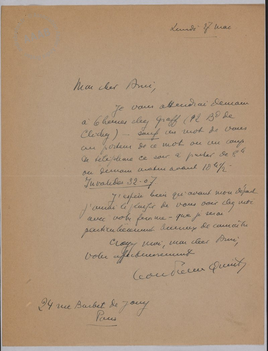 Lundi 8 mai
Mon cher Ami,
Je vous attendrai demain
à 8 heures chez Graff (Pl Bd de
Clichy) – sauf un mot de vous
ou un coup
de téléphone ce soir à partir de
ou demain matin avant 10 h ½
Invalides 52-07
J'espère bien qu'avant mon départ
j'aurai le temps de vous voir
avec votre femme – que je serai
particulièrement heureux de connaître
Croyez moi, mon cher Ami,
votre affectueusement
Léon Pierre Quint
34 rue Barbet de Jouy
Paris